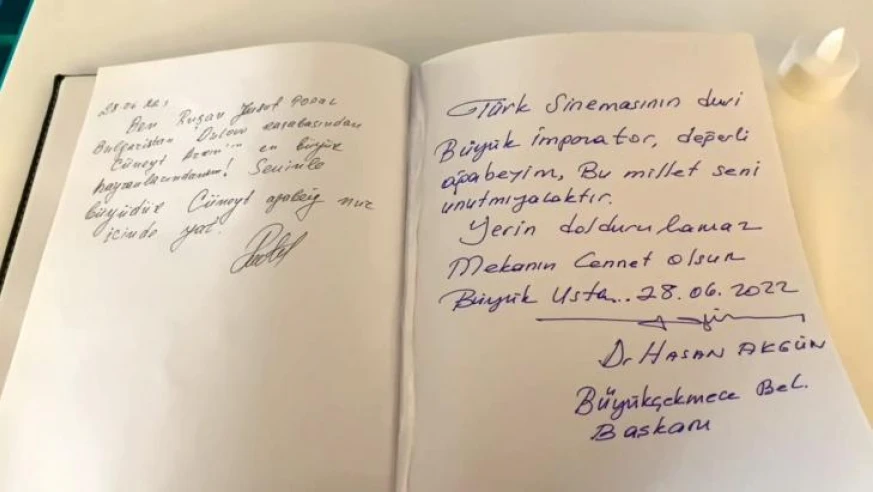 28.06.22
Ben Ruşan Yusuf
Bulgaristan Dulovo kasabasından
Cüneyt Arkın'ın en büyük
hayranlarındanım! Seninle
büyüdük Cüneyt agabeig nur
içinde yat!
Türk Sinemasının devi
Büyük İmporator, değerli
ağabeyim, Bu millet seni
unutmıyacaktır.
Yerin doldurulamaz
Mekanın Cennet olsun
Büyük Usta.. 28.06.2022
Dr HASAN AKGÜN
Büyükçekmece Bel.
Başkanı